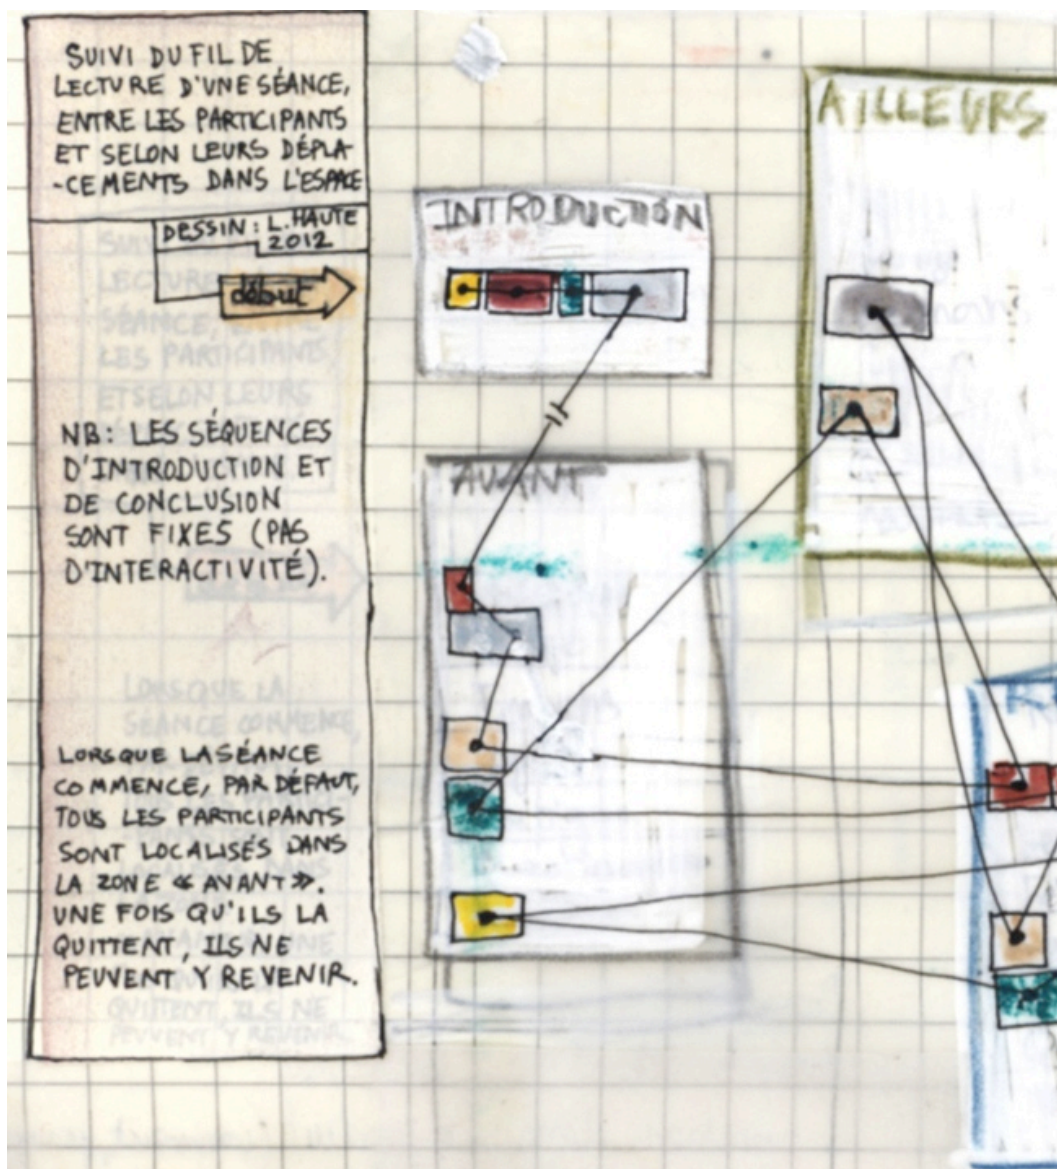 SUIVI DU FIL DE
LECTURE D'UNE SÉANCE,
ENTRE LES PARTICIPANTS
ET SELON LEURS DÉPLA
-CEMENTS DANS L'ESPACE
DESSIN : L. HAUTE
2012
début
NB : LES SÉQUENCES
D'INTRODUCTION ET
DE CONCLUSION
SONT FIXES (PAS
D'INTERACTIVITÉ).
LORSQUE LA SÉANCE
COMMENCE, PAR DÉFAUT,
TOUS LES PARTICIPANTS
SONT LOCALISÉS DANS
LA ZONE « AVANT ».
UNE FOIS QU'ILS LA
QUITTENT, ILS NE
PEUVENT Y REVENIR.
INTRODUCTION
AVANT
AILLEURS